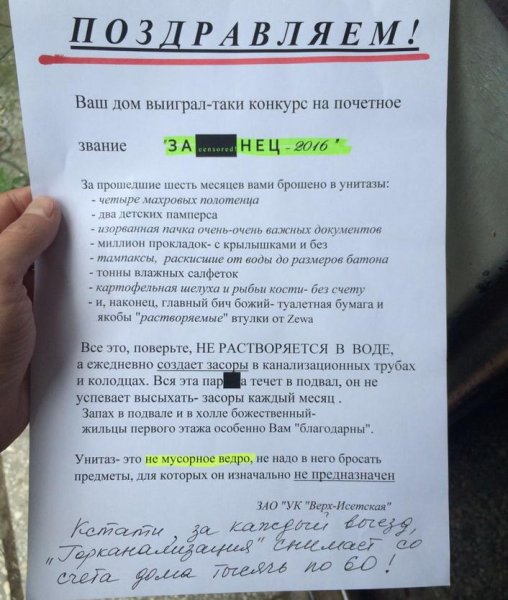 ПОЗДРАВЛЯЕМ!
Ваш дом выиграл-таки конкурс на почетное
звание "ЗА censored! НЕЦ - 2016"
За прошедшие шесть месяцев вами брошено в унитазы:
- четыре махровых полотенца
- два детских памперса
- изорванная пачка очень-очень важных документов
- миллион прокладок- с крылышками и без
- тампаксы, раскисшие от воды до размеров батона
- тонны влажных салфеток
- картофельная шелуха и рыбьи кости- без счету
- и, наконец, главный бич божий- туалетная бумага и
якобы "растворяемые" втулки от Zewa
Все это, поверьте, НЕ РАСТВОРЯЕТСЯ В ВОДЕ,
а ежедневно создает засоры в канализационных трубах
и колодцах. Вся эта пар а течет в подвал, он не
успевает высыхать- засоры каждый месяц .
Запах в подвале и в холле божественный-
жильцы первого этажа особенно Вам "благодарны".
Унитаз- это не мусорное ведро, не надо в него бросать
предметы, для которых он изначально не предназначен
ЗАО "УК "Верх-Исетская"
Кстати, за каждый выезд,
"Горканализация" снимает со
счета дома тысячь по 60!